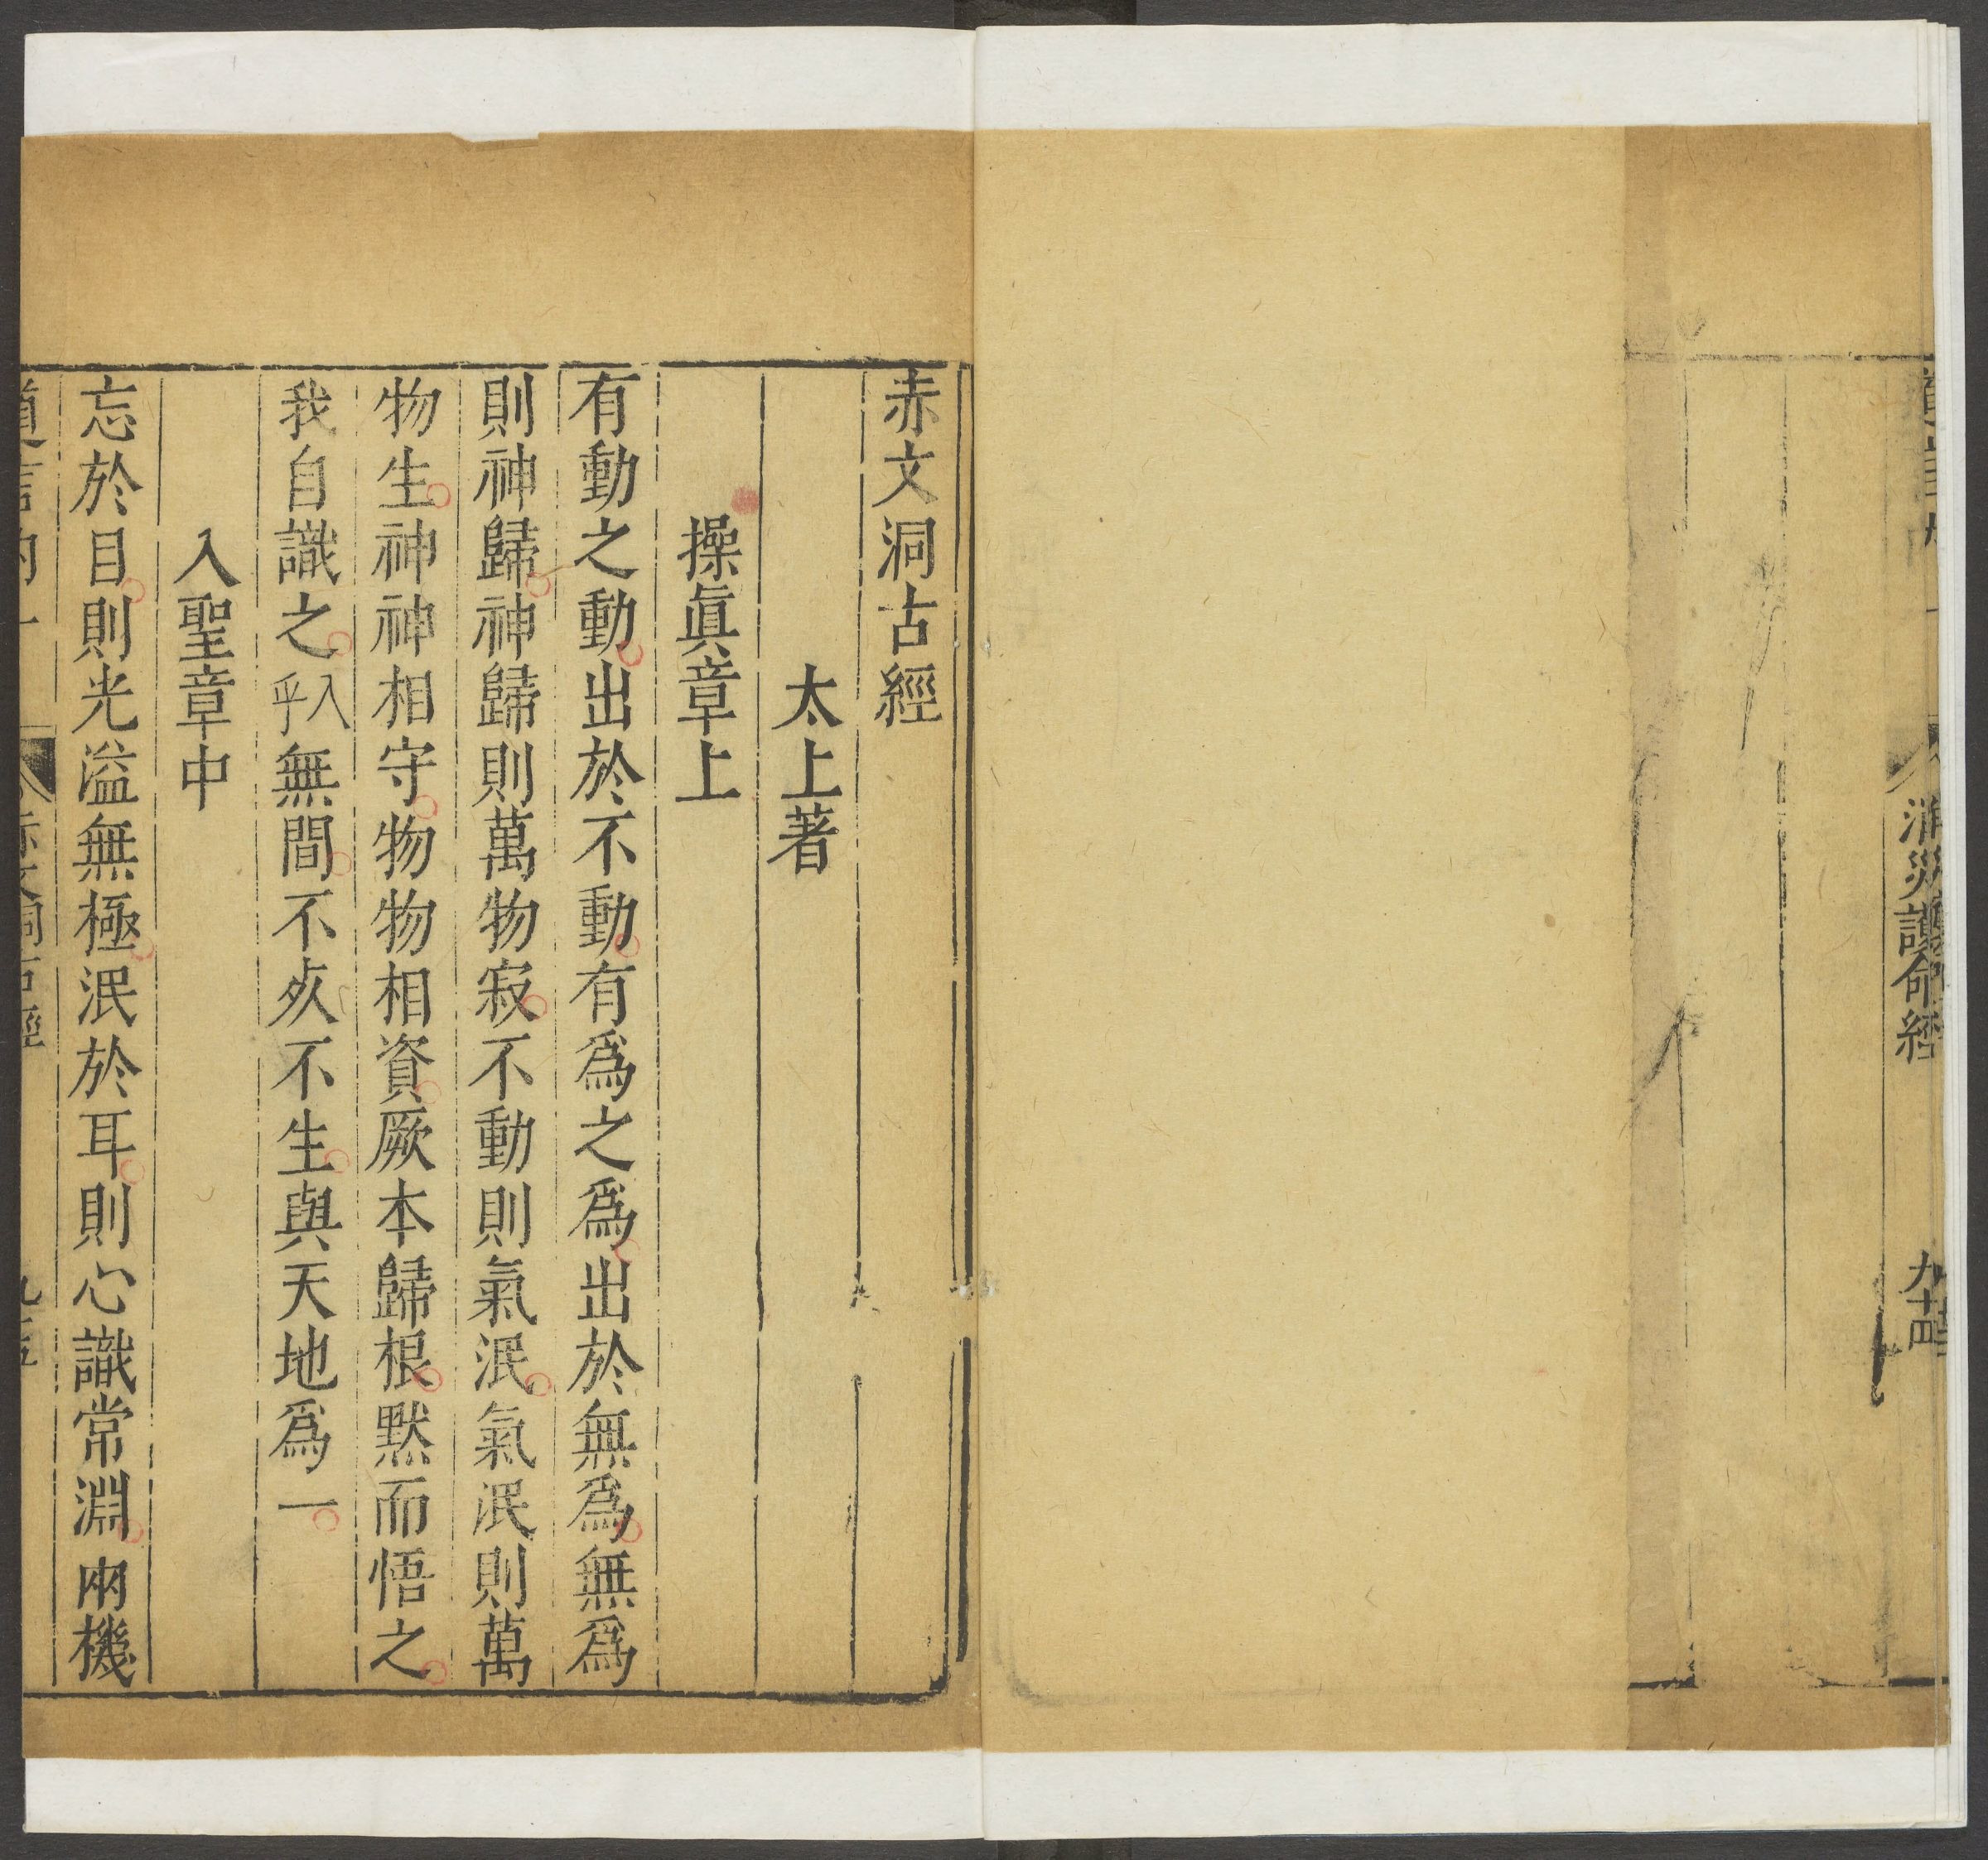 消災護命經
九十四
赤文洞古經
太上著
操眞章上
有動之動出於不動有爲之爲出於無爲無爲
則神歸神歸則萬物寂不動則氣泯氣泯則萬
物生神神相守物物相資厥本歸根默而悟之
我自識之入乎無間不死不生與天地爲一
入聖章中
忘於目則光溢無極泯於耳則心識常淵兩機
道言內
赤文洞古經
九十五